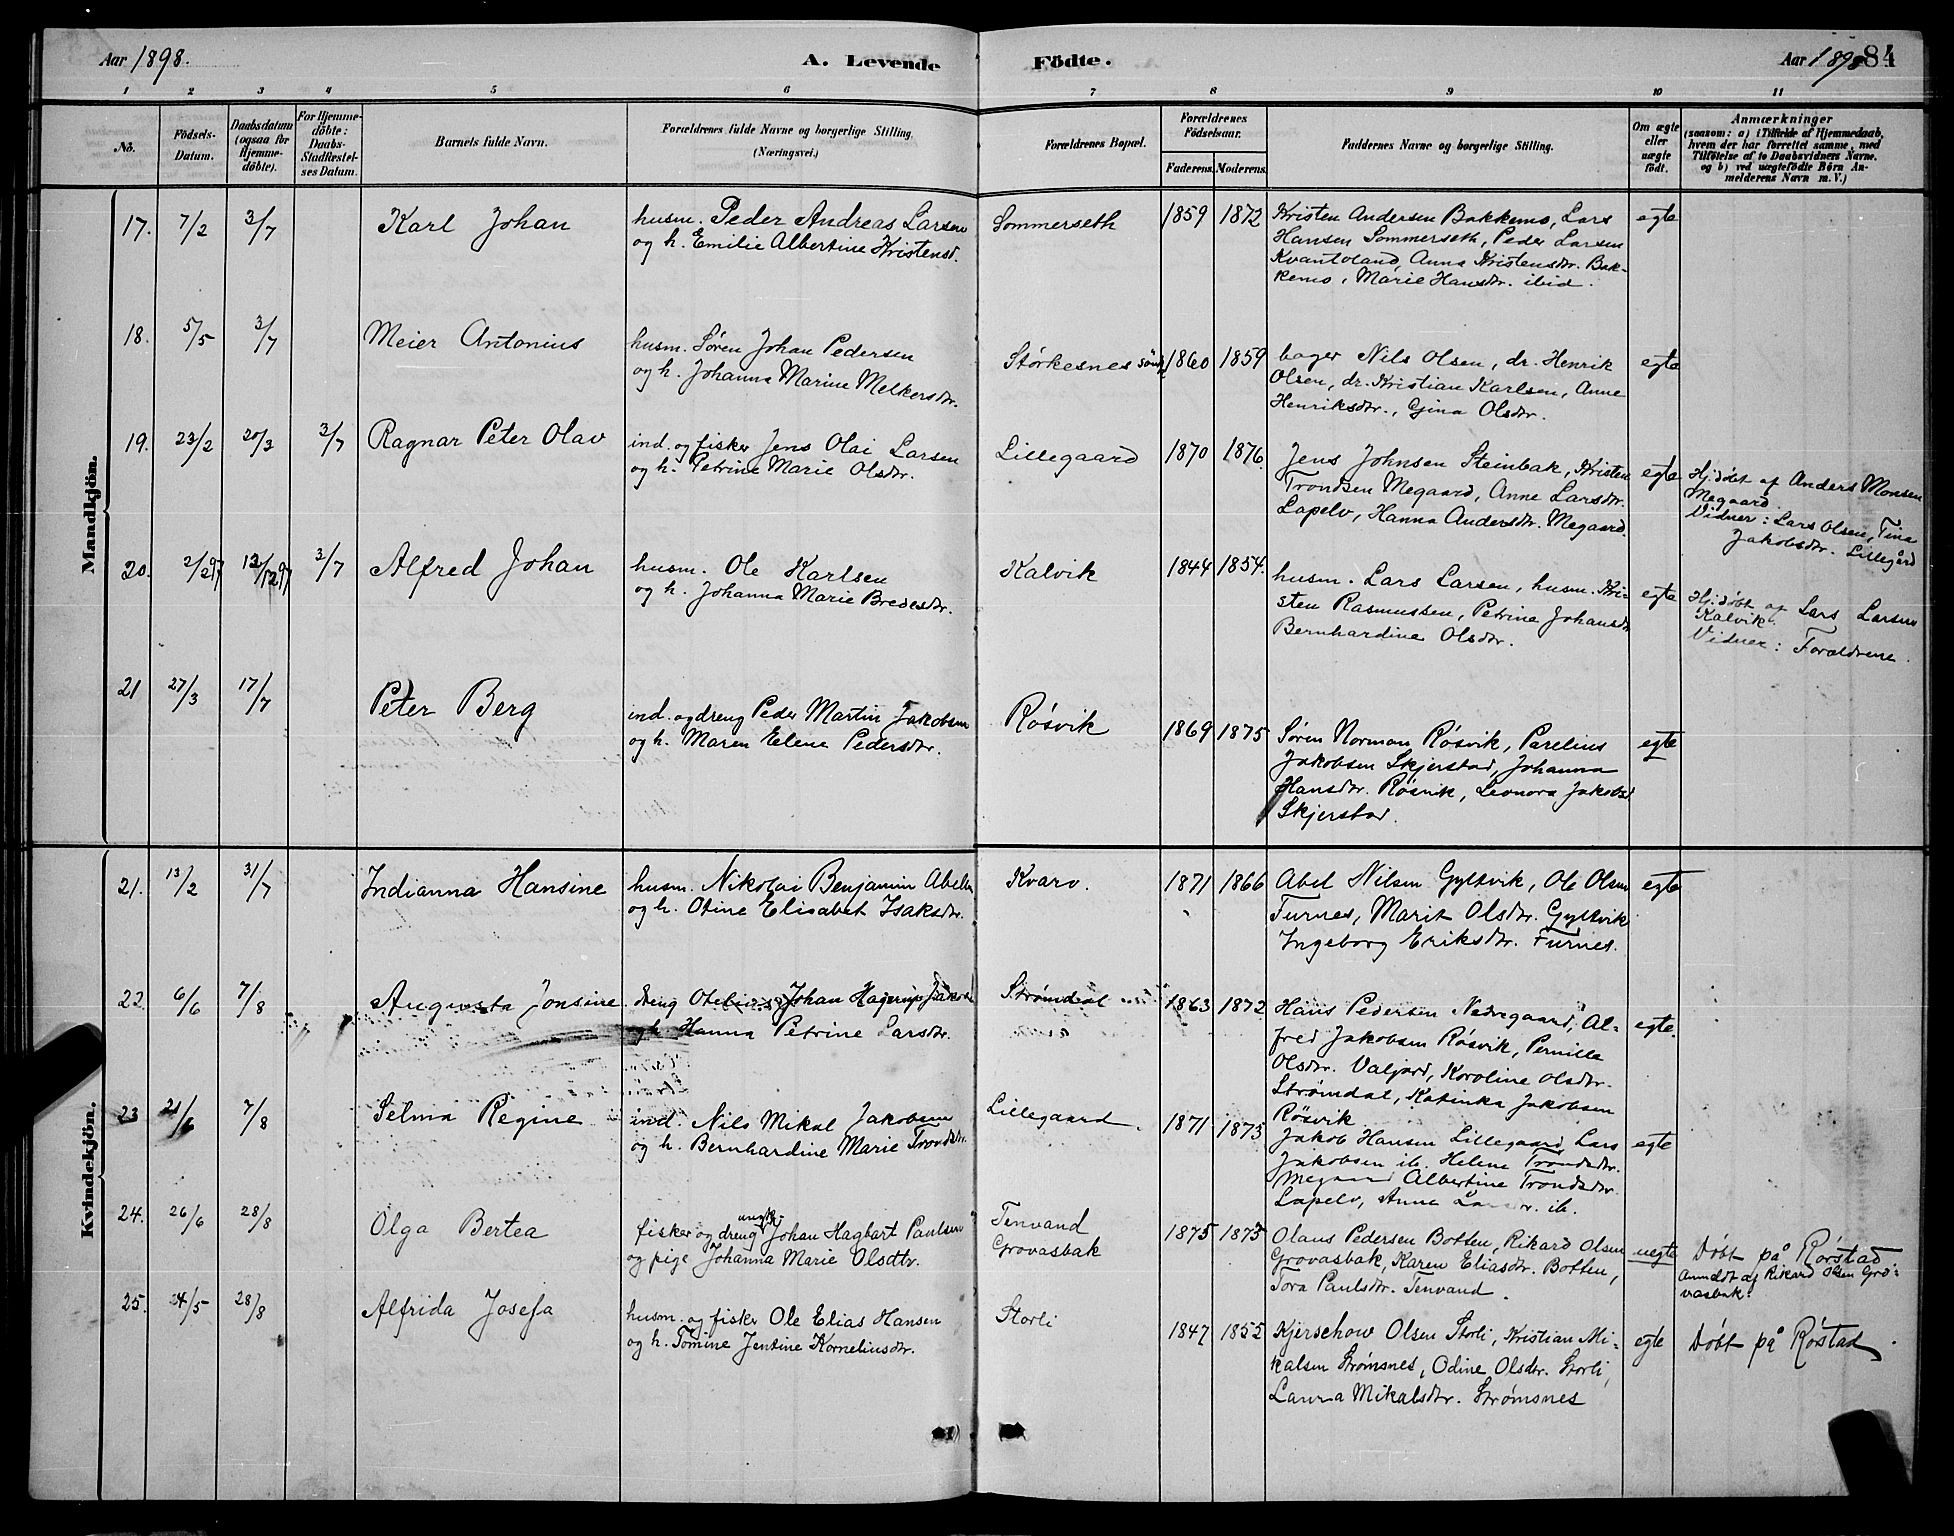 Aar 1898. A. Levende Födte. Aar 1898 84
1 2 3 4 5 6 7 8 9 10 11
No.
Födsels-Datum.
Daabsdatum (ogsaa for Hjemme-döbte).
For Hjemme-döbte: Daabs-Stadfæstel-ses Datum.
Barnets fulde Navn.
Forældrenes fulde Navne og borgerlige Stilling.
(Næringsvei.)
Forældrenes Bopæl.
Forældrenes Födselsaar.
Faderens. Moderens.
Faddernes Navne og borgerlige Stilling.
Om ægte eller uægte födt.
Anmærkninger
(saasom: a) i Tilfælde af Hjemmedaab,
hvem der har forrettet samme, med
Tilföielse af to Daabsvidners Navne.
og b) ved uægtefödte Börn An-
melderens Navn m. V.)
Mandkjön.
17. 7/2 3/7 Karl Johan
husm. Peder Andreas Larsen
og h. Emilie Albertine Kristensd.
Sommerseth 1859 1872
Kristen Andersen Bakkemo, Lars
Hansen Sommerseth, Peder Larsen
Kvantoland, Anna Kristensdtr. Bak-
kemo, Marie Hansdtr. ibid.
egte
18. 5/5 3/7 Meier Antonius
husm. Søren Johan Pedersen
og h. Johanna Marine Melkersdtr.
Störkesnes 1860 1859
bager Nils Olsen, dr. Henrik
Olsen, dr. Kristian Karlsen, Anne
Henriksdtr., Gina Olsdtr.
egte
19. 23/2 20/3 3/7 Ragnar Peter Olav
ind. og fisker Jens Olai Larsen
og h. Petrine Marie Olsdtr.
Lillegaard 1870 1876.
Jens Johnsen Steinbak, Kristen
Trondsen Megaard, Anne Larsdtr.
Lapelv, Hanna Andersdtr. Megaard.
egte
Hj.døbt af Anders Monsen
Megaard.
Vidner: Lars Olsen, Tina
Jakobsdtr. Lillegård
20. 2/2 97 12/12 97 3/7 Alfred Johan
husm. Ole Karlsen
og h. Johanna Marie Bredesdtr.
Kalvik 1844 1854.
husm. Lars Larsen, husm. Kri-
sten Rasmussen, Petrine Johansdtr
Bernhardine Olsdtr.
egte
Hj.døbt af Lars Larsen
Kalvik.
Vidner: Forældrene.
21 27/3 17/7 Peter Berg
ind. og dreng Peder Martin Jakobsen
og h. Maren Elene Pedersdtr.
Røsvik 1869 1875
Søren Norman Røsvik, Parelius
Jakobsen Skjerstad, Johanna
Hansdtr. Røsvik, Leonora Jakobsd.
Skjerstad.
egte
Kvindekjön.
21. 13/2 31/7 Indianna Hansine
husm. Nikolai Benjamin Abelsen
og h. Otine Elisabet Isaksdtr.
Kvarv. 1871 1866
Abel Nilsen Gyltvik, Ole Olsen
Furnes, Marit Olsdtr. Gyltvik
Ingeborg Eriksdtr. Furnes.
egte
22. 6/6 7/8 Augusta Jonsine
dreng Johan Hagerup Jakobs
og h. Hanna Petrine Larsdtr.
Strømdal 1863 1872
Hans Pedersen Nedregaard, Al-
fred Jakobsen Røsvik, Pernille
Olsdtr. Valjord, Karoline Olsdtr.
Strømdal, Katinka Jakobsen
Røsvik
egte.
23 21/6 7/8 Selma Regine
ind. Nils Mikal Jakobsen
og h. Bernhardine Marie Trondsdtr.
Lillegaard. 1871 1873
Jakob Hansen Lillegaard, Lars
Jakobsen ib. Helene Trondsdtr.
Megaard Albertine Trondsdtr
Lapelv, Anna ib.
egte
24. 26/6 28/8 Olga Bertea
fisker og dreng ungk. Johan Hagbart Paulsen
og pige Johanna Marie Olsdtr.
Tenvand
Grovasbak
1875 1873
Olaus Pedersen Botten, Rikard Olsen
Grovasbak, Karen Eliasdtr. Botten,
Tora Paulsdtr. Tenvand.
uegte
Døbt på Rørstad.
Anmeldt af Rikard Olsen Gro-
vasbak.
25. 24/5 28/8 Alfrida Josefa
husm. og fisker Ole Elias Hansen
og h. Tomine Jentine Korneliusdtr.
Storli 1847 1852
Kjerschow Olsen Storli, Kristian Mi-
kalsen Strømsnes, Odine Olsdtr. Storli,
Laura Mikalsdtr. Strømsnes
egte
Døbt på Rørstad